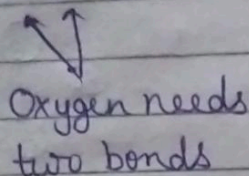 Oxygen needs
two bonds